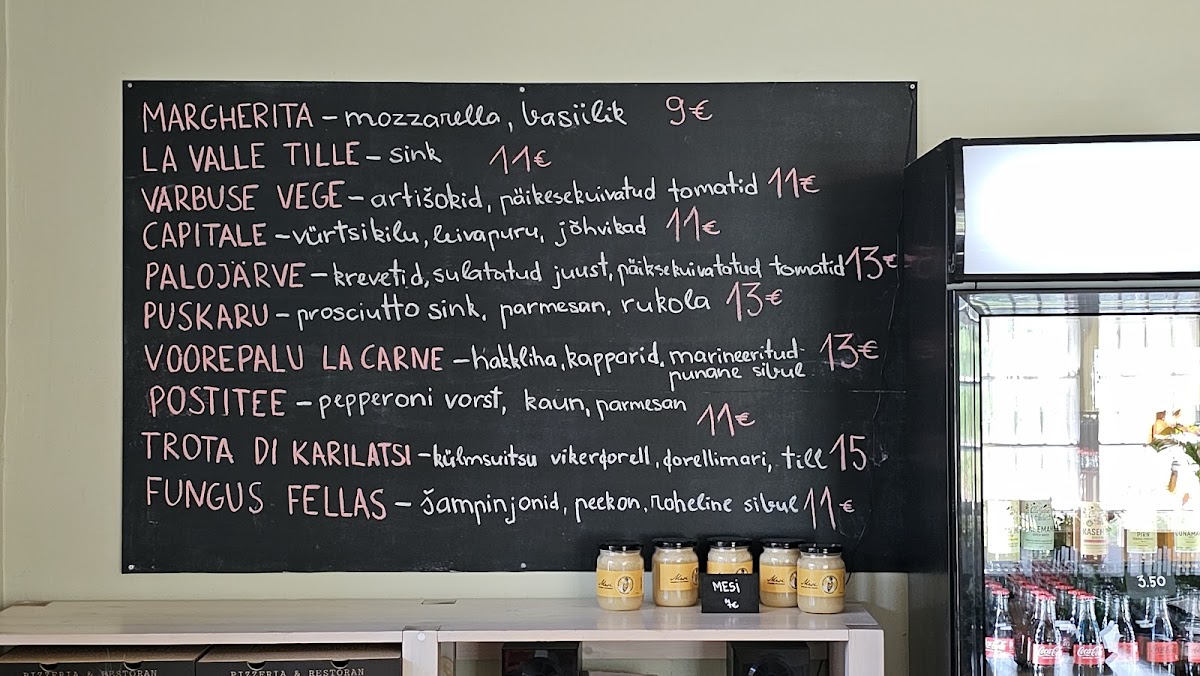 MARGHERITA – mozzarella, basiilik 9€
LA VALLE TILLE – sink 11€
VARBUSE VEGE – artišokid, päikesekuivatud tomatid 11€
CAPITALE – vürtsikilu, leivapuru, jõhvikad 11€
PALOJÄRVE – krevetid, sulatatud juust, päiksekuivatatud tomatid 13€
PUSKARU – prosciutto sink, parmesan, rukola 13€
VOOREPALU LA CARNE – hakkliha, kapparid, marineeritud 13€
punane sibul
POSTITEE – pepperoni vorst, kaun, parmesan
11€
TROTA DI KARILATSI – külmsuitsu vikerforell, forellimari, till 15
FUNGUS FELLAS – šampinjonid, peekon, roheline sibul 11€
MESI
7€
3.50
PIZZERIA & RESTORAN
PIZZERIA & RESTORAN
Coca-Cola
Coca-Cola